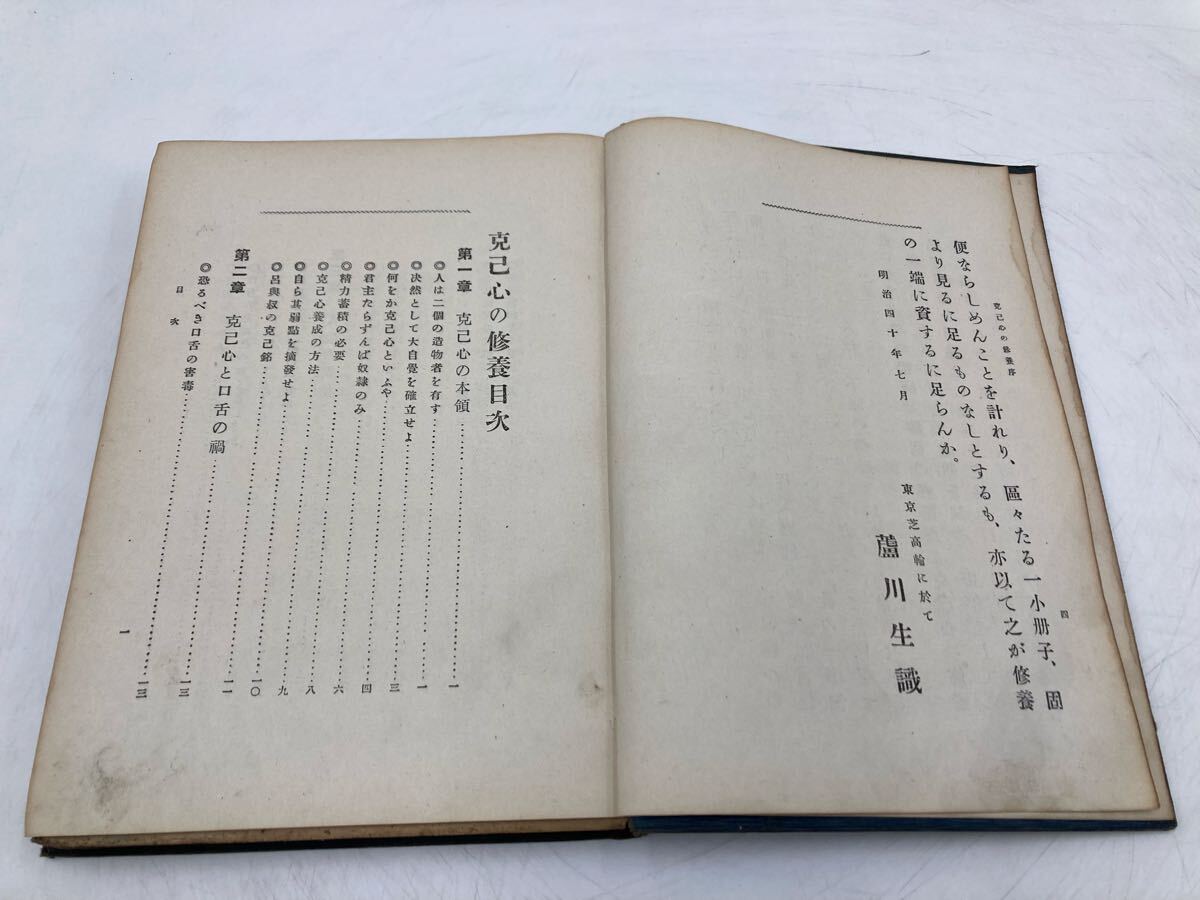 克己心の修養序
四
便ならしめんことを計れり、區々たる一小册子、固
より見るに足るものなしとするも、亦以て之が修養
の一端に資するに足らんか。
明治四十年七月
東京芝高輪に於て
蘆川生識
克己心の修養目次
第一章 克己心の本領……一
◎人は二個の造物者を有す……一
◎決然として大自覺を確立せよ……三
◎何をか克己心といふや……四
◎君主たらずんば奴隷のみ……六
◎精力蓄積の必要……八
◎克己心養成の方法……九
◎自ら其弱點を摘發せよ……一〇
◎呂與叔の克己銘……一一
第二章 克己心と口舌の禍……一三
◎恐るべき口舌の害毒……一三
目次
一